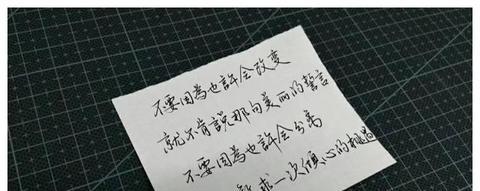 不要因為也許会改变
就不肯說那句美丽的誓言
不要因為也許会分离
求一次倾心的相遇